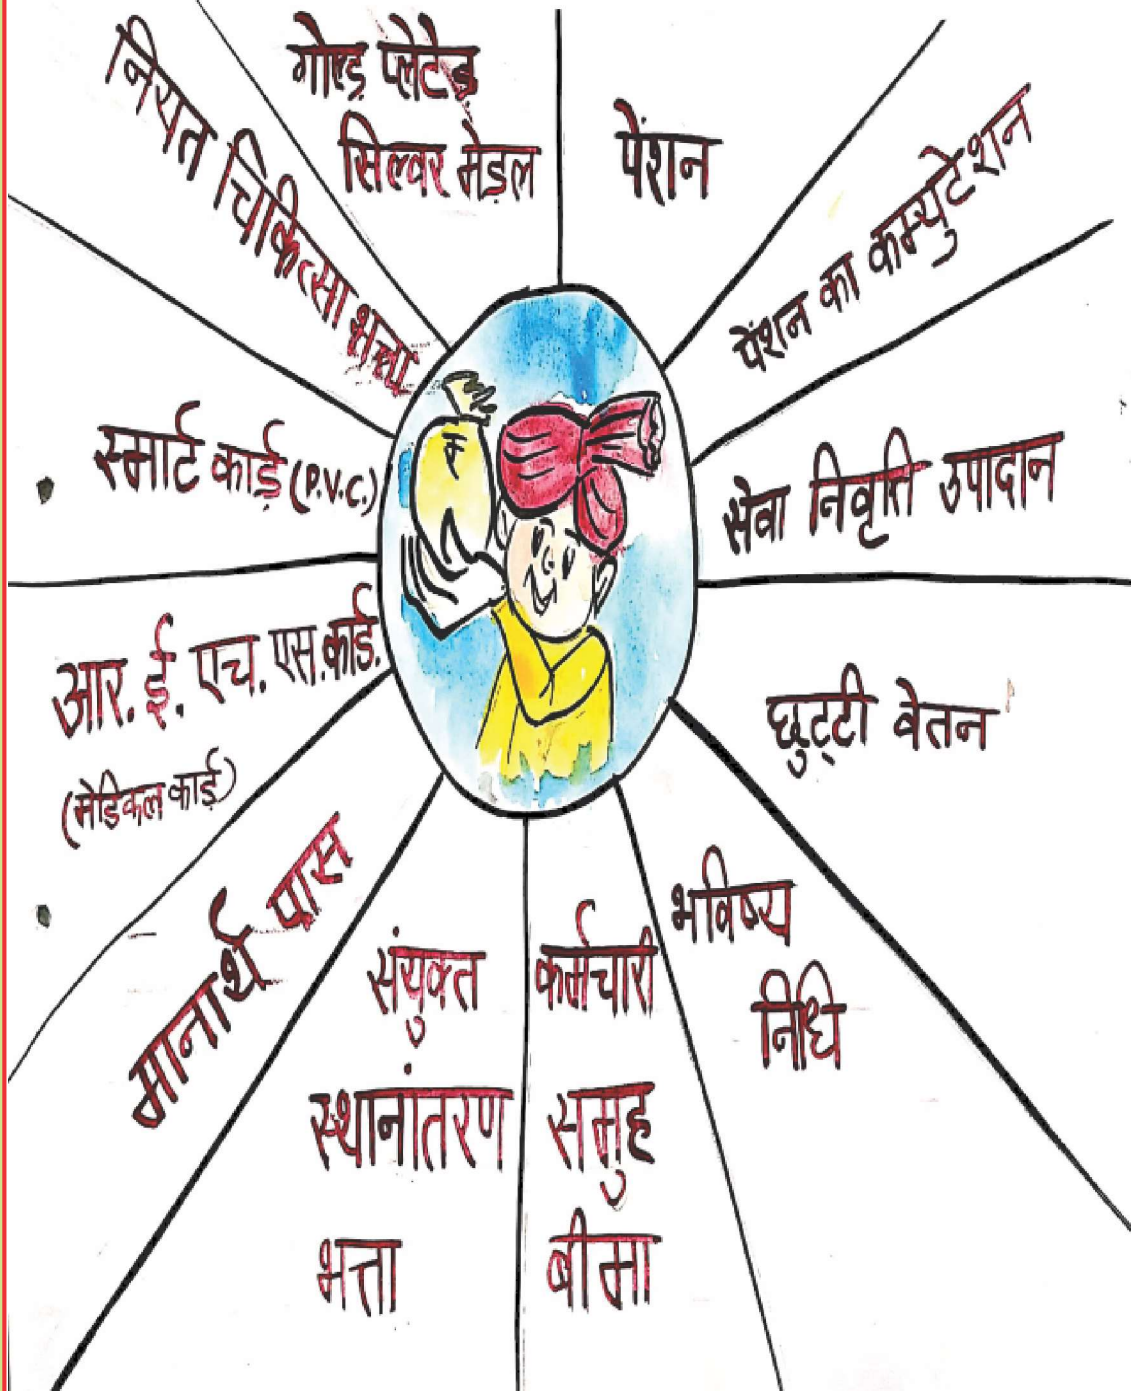 गोल्ड़ प्लेटैड़
सिल्वर मेड़ल
पेंशन
पेंशन का कम्युटेशन
सेवा निवृति उपादान
छुट्टी वेतन
भविष्य
निधि
कर्मचारी
समुह
बीमा
संयुक्त
स्थानांतरण
भत्ता
मानार्थ पास
आर. ई. एच. एस. कार्ड.
(मेडिकल कार्ड़)
स्मार्ट कार्ड़ (P.V.C.)
नियत चिकित्सा भत्ता
₹